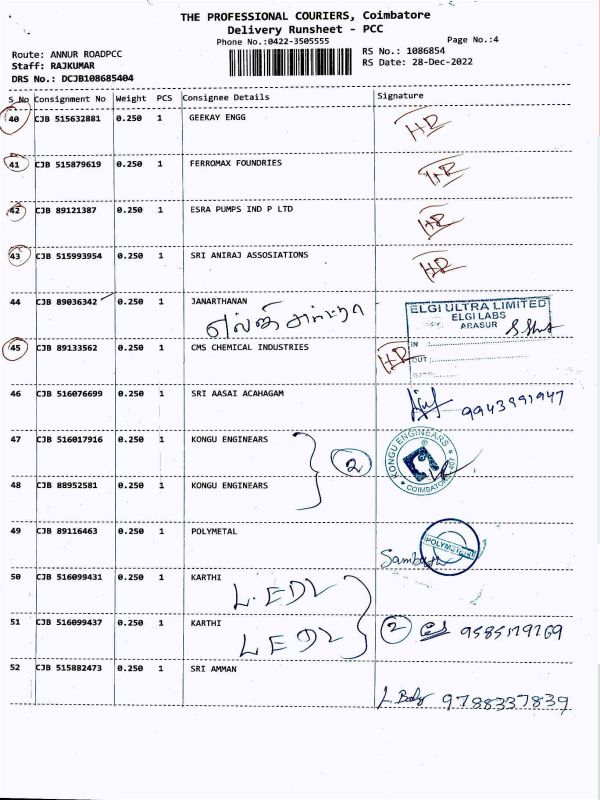 THE PROFESSIONAL COURIERS, Coimbatore
Delivery Runsheet - PCC
Phone No.:0422-3505555
Page No.:4
Route: ANNUR ROADPCC
RS No.: 1086854
Staff: RAJKUMAR
RS Date: 28-Dec-2022
DRS No.: DCJB108685404
S No Consignment No Weight PCS Consignee Details Signature
40 CJB 515632881 0.250 1 GEEKAY ENGG
41 CJB 515879619 0.250 1 FERROMAX FOUNDRIES
42 CJB 89121387 0.250 1 ESRA PUMPS IND P LTD
43 CJB 515993954 0.250 1 SRI ANIRAJ ASSOSIATIONS
44 CJB 89036342 0.250 1 JANARTHANAN
ELGI ULTRA LIMITED
ELGI LABS
ARASUR
IN
OUT
45 CJB 89133562 0.250 1 CMS CHEMICAL INDUSTRIES
46 CJB 516076699 0.250 1 SRI AASAI ACAHAGAM
9943991947
47 CJB 516017916 0.250 1 KONGU ENGINEARS
2
KONGU ENGINEARS
COIMBATORE
48 CJB 88952581 0.250 1 KONGU ENGINEARS
49 CJB 89116463 0.250 1 POLYMETAL
POLYMETAL
50 CJB 516099431 0.250 1 KARTHI
51 CJB 516099437 0.250 1 KARTHI
2
52 CJB 515882473 0.250 1 SRI AMMAN
9788337839